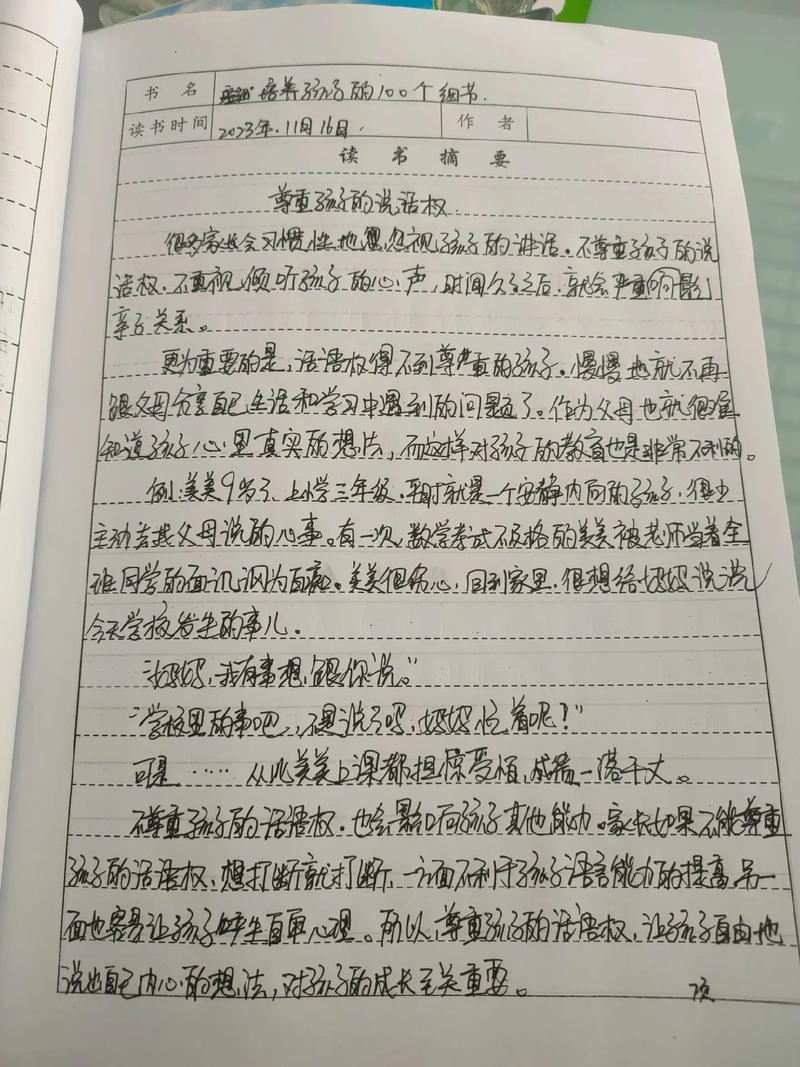 书 名 培养孩子的100个细节.
读书时间 2023年.11月16日. 作 者
读 书 摘 要
尊重孩子的说话权
很多家长会习惯性地忽视孩子的讲话。不尊重孩子的说
话权.不重视倾听孩子的心声,时间久了之后.就会严重影响
亲子关系。
更为重要的是,话语权得不到尊重的孩子.慢慢地就不再
跟父母分享自己生活和学习中遇到的问题了。作为父母也就很难
知道孩子心里真实的想法,而这样对孩子的教育也是非常不利的。
例:美美9岁了.上小学三年级.平时就是一个安静内向的孩子.很少
主动去找父母说的心事。有一次,数学考试不及格的美美被老师当着全
班同学的面讥讽为白痴。美美很伤心,回到家里.很想给妈妈说说
今天学校发生的事儿。
"妈妈,我有事想跟你说。"
"学校里的事吧,不是说了吗,妈妈忙着呢?"
可是…… 从此美美上课都担惊受怕,成绩一落千丈。
不尊重孩子的话语权.也会影响孩子其他能力。家长如果不能尊重
孩子的话语权,想打断就打断,一方面不利于孩子语言能力的提高.另一
面也容易让孩子产生自卑心理。所以,尊重孩子的话语权,让孩子自由地
说出自己内心的想法,对孩子的成长至关重要。